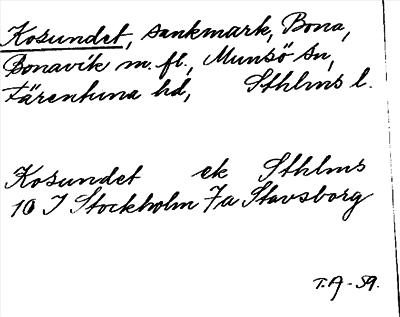 Kosundet, sankmark, Bona,
Bonavik m. fl., Munsö sn,
Färentuna hd, Sthlms l.
Kosundet ek Sthlms
10 I Stockholm 7a Stavsborg
T.A-59.